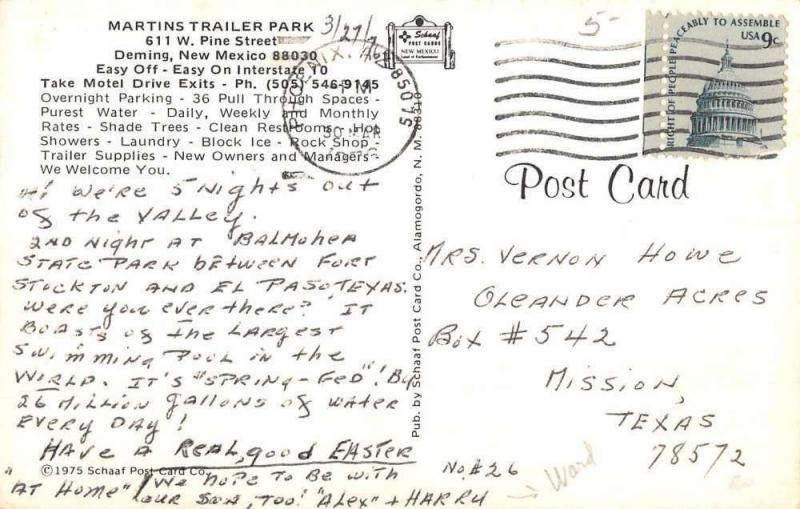 MARTINS TRAILER PARK
611 W. Pine Street
Deming, New Mexico 88030
Easy Off - Easy On Interstate 10
Take Motel Drive Exits - Ph. (505) 546-9145
Overnight Parking - 36 Pull Through Spaces -
Purest Water - Daily, Weekly and Monthly
Rates - Shade Trees - Clean Restrooms - Hot
Showers - Laundry - Block Ice - Rock Shop -
Trailer Supplies - New Owners and Managers -
We Welcome You.
3/27/76
Hi! We're 5 nights out
of the VALLEY.
2ND Night AT BALMOHEA
STATE PARK between FORT
STOCKTON AND EL PASO TEXAS.
Were you ever there? IT
BOASTS of the LARGEST
SWIMMING POOL in the
WORLD. IT'S "SPRING-FED"! By
26 MILLION gallons of WATER
EVERY DAY!
HAVE A REAL, good EASTER
©1975 Schaaf Post Card Co.,
"AT HOME" / (We hope TO BE WITH
OUR SON, TOO! "ALEX" + HARRY
Schaaf
POST CARDS
NEW MEXICO
Land of Enchantment
PM
30 MAR
Pub. by Schaaf Post Card Co., Alamogordo, N. M. 88310
5-
RIGHT OF PEOPLE PEACEABLY TO ASSEMBLE
USA 9c
Post Card
MRS. VERNON HOWE
OLEANDER ACRES
Box #542
MISSION,
TEXAS
78572
No. #26
→ Ward